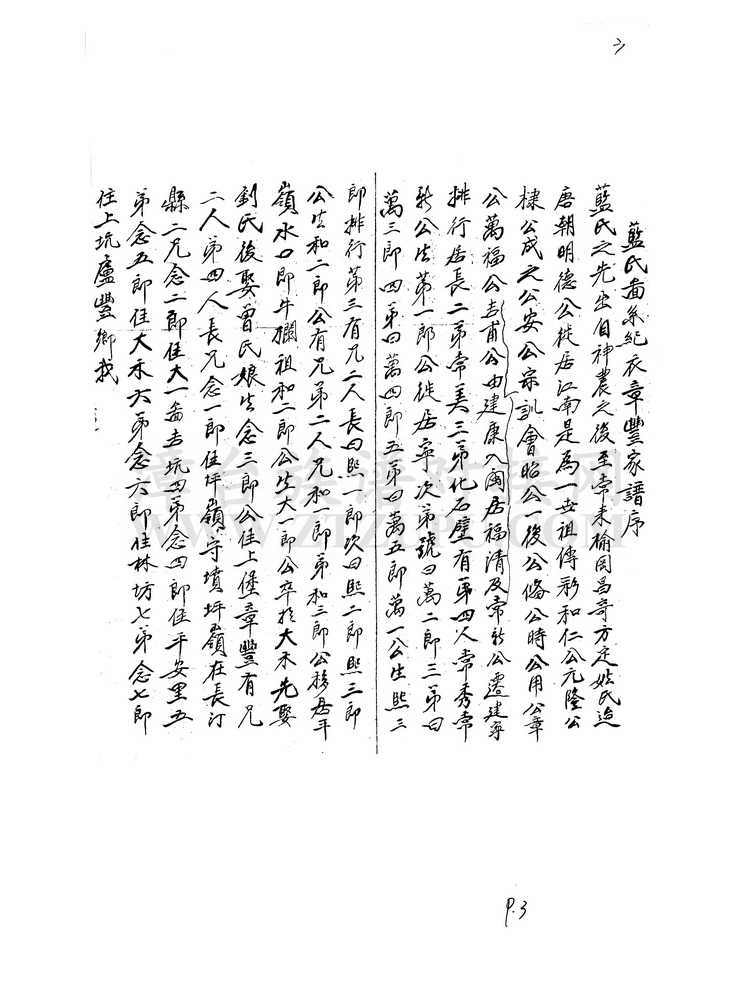 藍氏畨系紀衣章豐家譜序
藍氏之先出自神農之後至帝榆罔昌奇方定姓氏迨
唐朝明德公徙居江南是為一世祖傳彩和仁公元隆公
棣公成之公安公宗訓會昭公一後公俻公時公用公章
公萬福公吉甫公由建康入閩居福清及常新公遷建寧
排行居長二弟常美三弟化石壁有第四人常秀常
新公生第一郎公徙居寧次第號曰萬二郎三弟曰
萬三郎四弟曰萬四郎五弟曰萬五郎萬一公生熙三
郎排行第三有兄二人長曰熙一郎次曰熙二郎熙三郎
公生和二郎公有兄弟二人兄和一郎弟和三郎公移居平
嶺水口即牛欄祖和二郎公生大一郎公卒於大禾先娶
劉氏後娶曾氏娘生念三郎公住上堡章豐有兄
二人第四人長兄念一郎住坪嶺守墳坪嶺在長汀
縣二兄念二郎住大一畨去坑四弟念四郎住平安里五
弟念五郎住大禾六弟念六郎住林坊七弟念七郎
住上坑盧豐鄉我
P.3
www.ztzupu.com